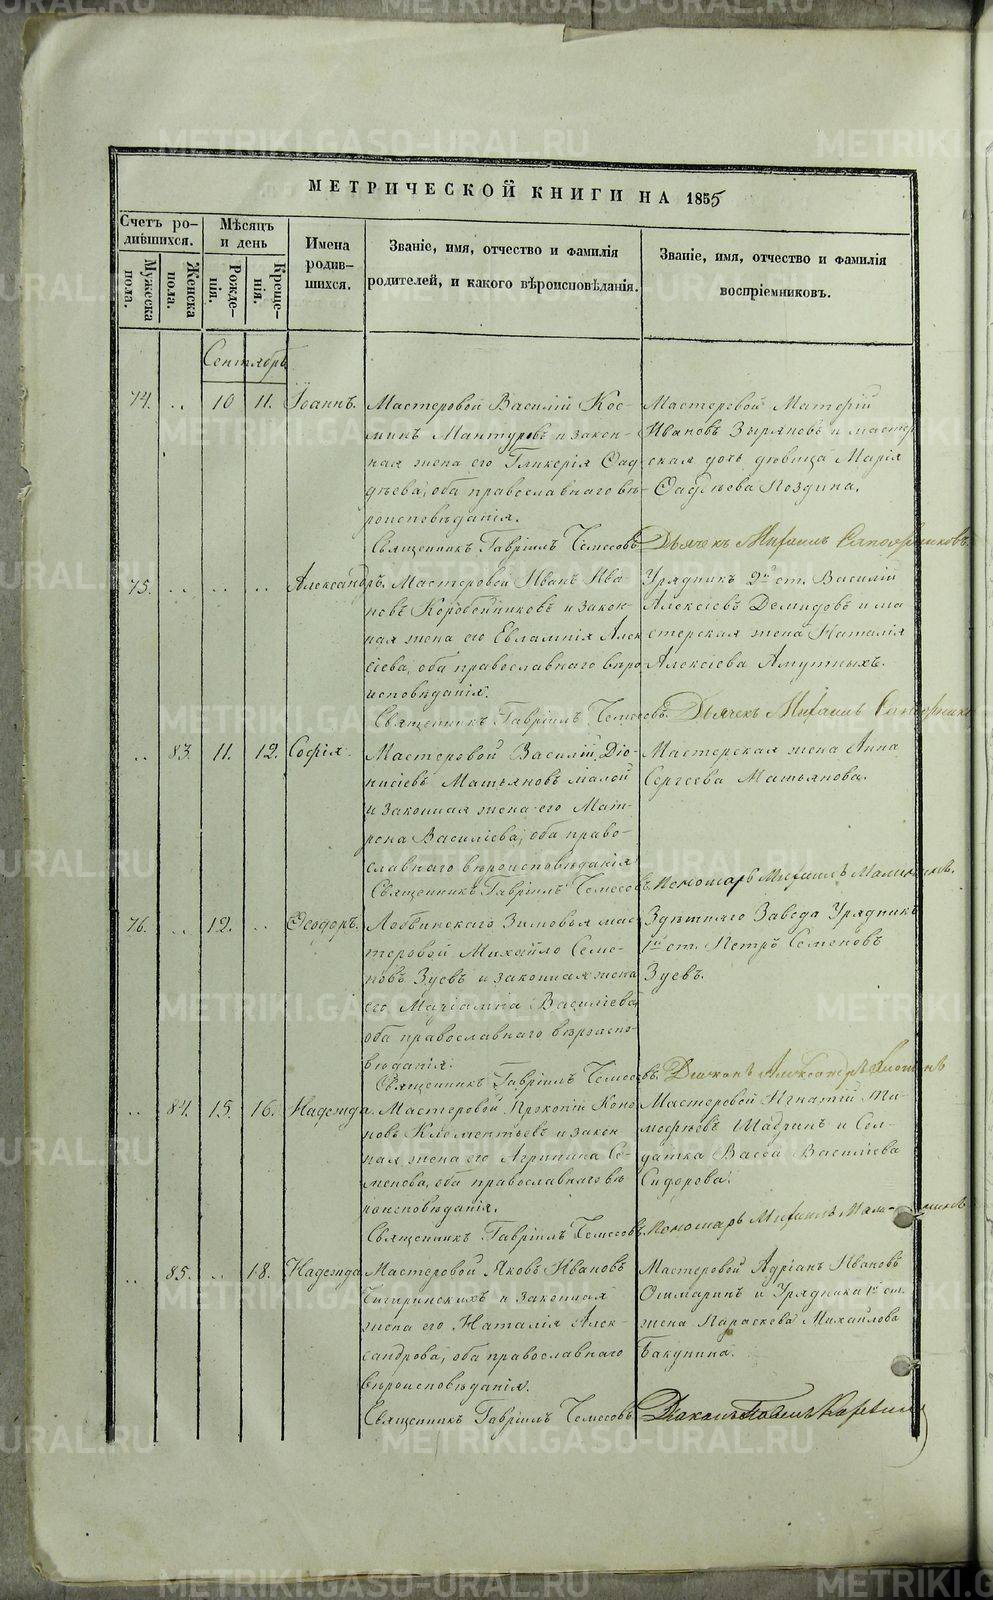 МЕТРИЧЕСКОЙ КНИГИ НА 1855
Счетъ ро-
дившихся.
Мужеска
пола.
Женска
пола.
Мѣсяцъ
и день
Рожде-
нія.
Креще-
нія.
Имена
родив-
шихся.
Званіе, имя, отчество и фамилія
родителей, и какого вѣроисповѣданія.
Званіе, имя, отчество и фамилія
воспріемниковъ.
Сентябрь
74. .. 10 11. Іоаннъ.
Мастеровой Василій Кос-
минъ Мантуровъ и закон-
ная жена его Гликерія Фад-
дѣева, оба православнаго вѣ-
роисповѣданія.
Священникъ Гавріилъ Чемесовъ
Мастеровой
Ивановъ Зыряновъ и мастер
ская дочь дѣвица Марія
Фаддѣева Поздина.
Дьячекъ Михаилъ
75. .. .. .. Александръ.
Мастеровой Иванъ Ива
новъ Коробейниковъ и закон-
ная жена его Евлампія Алек
сіева, оба православнаго вѣро
исповѣданія.
Священникъ Гавріилъ Чемесовъ.
Урядникъ 2й ст. Василій
Алексіевъ Демидовъ и ма
стерская жена Наталія
Алексіева
Дьячекъ Михаилъ
.. 83. 11. 12. Софія.
Мастеровой Василій Діо-
нисіевъ Матьяновъ малой
и законная жена его Мат-
рена Василіева, оба право-
славнаго вѣроисповѣданія
Священникъ Гавріилъ Чемесовъ.
Мастерская жена Анна
Сергеева Матьянова.
Пономарь Михаилъ
76. .. 12. .. Ѳеодоръ.
Лобвинскаго Зимовья мас
теровой Михайло Семе-
новъ Зуевъ и законная жена
его Маріамна Василіева
оба православнаго вѣроиспо-
вѣданія.
Священникъ Гавріилъ Чемесовъ.
Здѣшняго Завода Урядникъ
1й ст. Петръ Семеновъ
Зуевъ.
Діаконъ Александръ
.. 84. 15. 16. Надежда.
Мастеровой Прокопій Коно
новъ Клементьевъ и закон
ная жена его Агрипина Се-
менова, оба православнаго вѣ
роисповѣданія.
Священникъ Гавріилъ Чемесовъ.
Мастеровой Игнатій Ти-
мофѣевъ Шадринъ и Сол-
датка Васса Василіева
Сидорова.
Пономарь Михаилъ
.. 85. .. 18. Надежда
Мастеровой Яковъ Ивановъ
Чигиринскихъ и законная
жена его Наталія Алек-
сандрова, оба православнаго
вѣроисповѣданія.
Священникъ Гавріилъ Чемесовъ.
Мастеровой Адріанъ Ивановъ
Ошмаринъ и Урядника 1й ст.
жена Параскева Михайлова
Бакунина.
Діаконъ Павелъ
METRIKI.GASO-URAL.RU